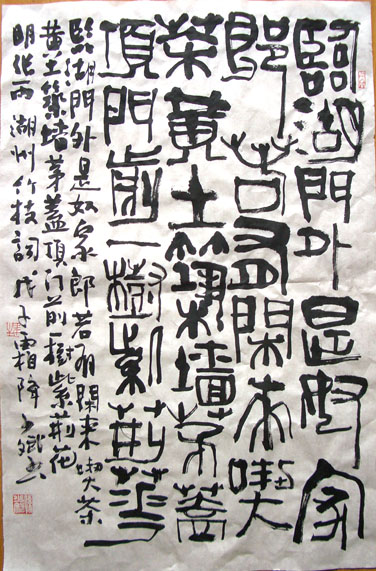 臨湖門外是奴家
郎若有閑来喫
茶黄土築墻茅蓋
頂門前一樹紫荆華
臨湖門外是奴家郎若有閑来喫茶
黄土築墻茅蓋頂门前一樹紫荆花
明 湖州竹枝詞戊子霜降